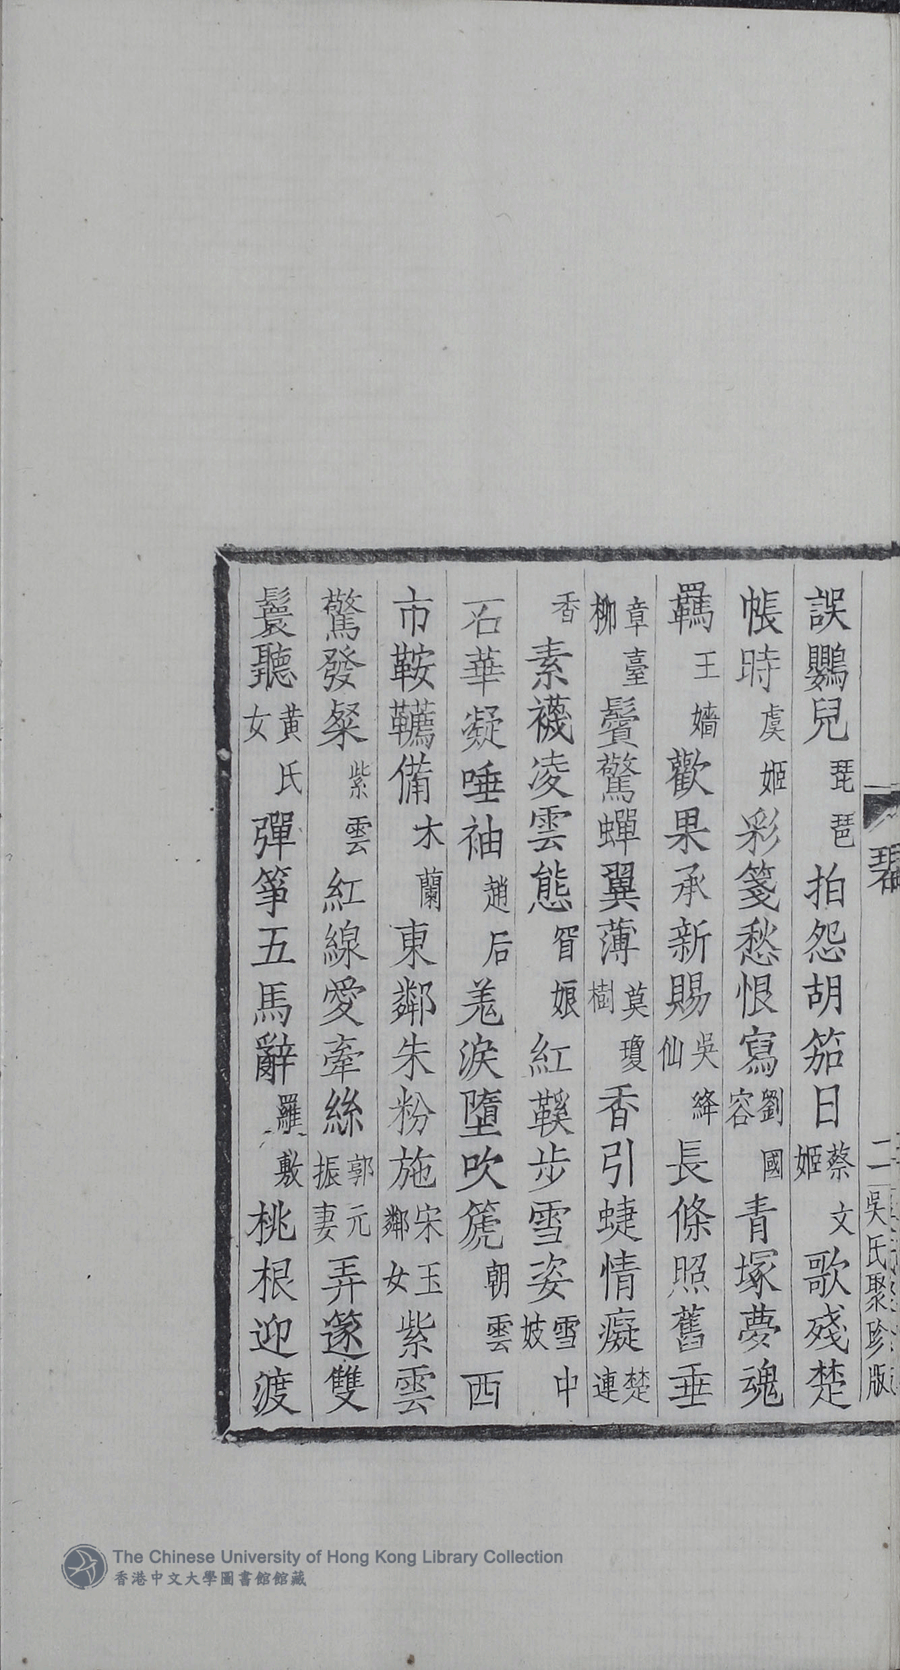 碧 二 吳氏聚珍版
誤鸚兒琵琶拍怨胡笳日蔡文姬歌殘楚
帳時虞姬彩箋愁恨寫劉國容青塚夢魂
羈王嬙歡果承新賜吳絳仙長條照舊垂
章臺柳鬢驚蟬翼薄莫瓊樹香引蜨情癡楚連
香素襪凌雲態窅娘紅鞵步雪姿雪中妓
石華凝唾袖趙后羗淚墮吹篪朝雲西
市鞍韉備木蘭東鄰朱粉施宋玉鄰女紫雲
驚發粲紫雲紅線愛牽絲郭元振妻弄篴雙
鬟聽黃氏女彈箏五馬辭羅敷桃根迎渡
The Chinese University of Hong Kong Library Collection
香港中文大學圖書館館藏